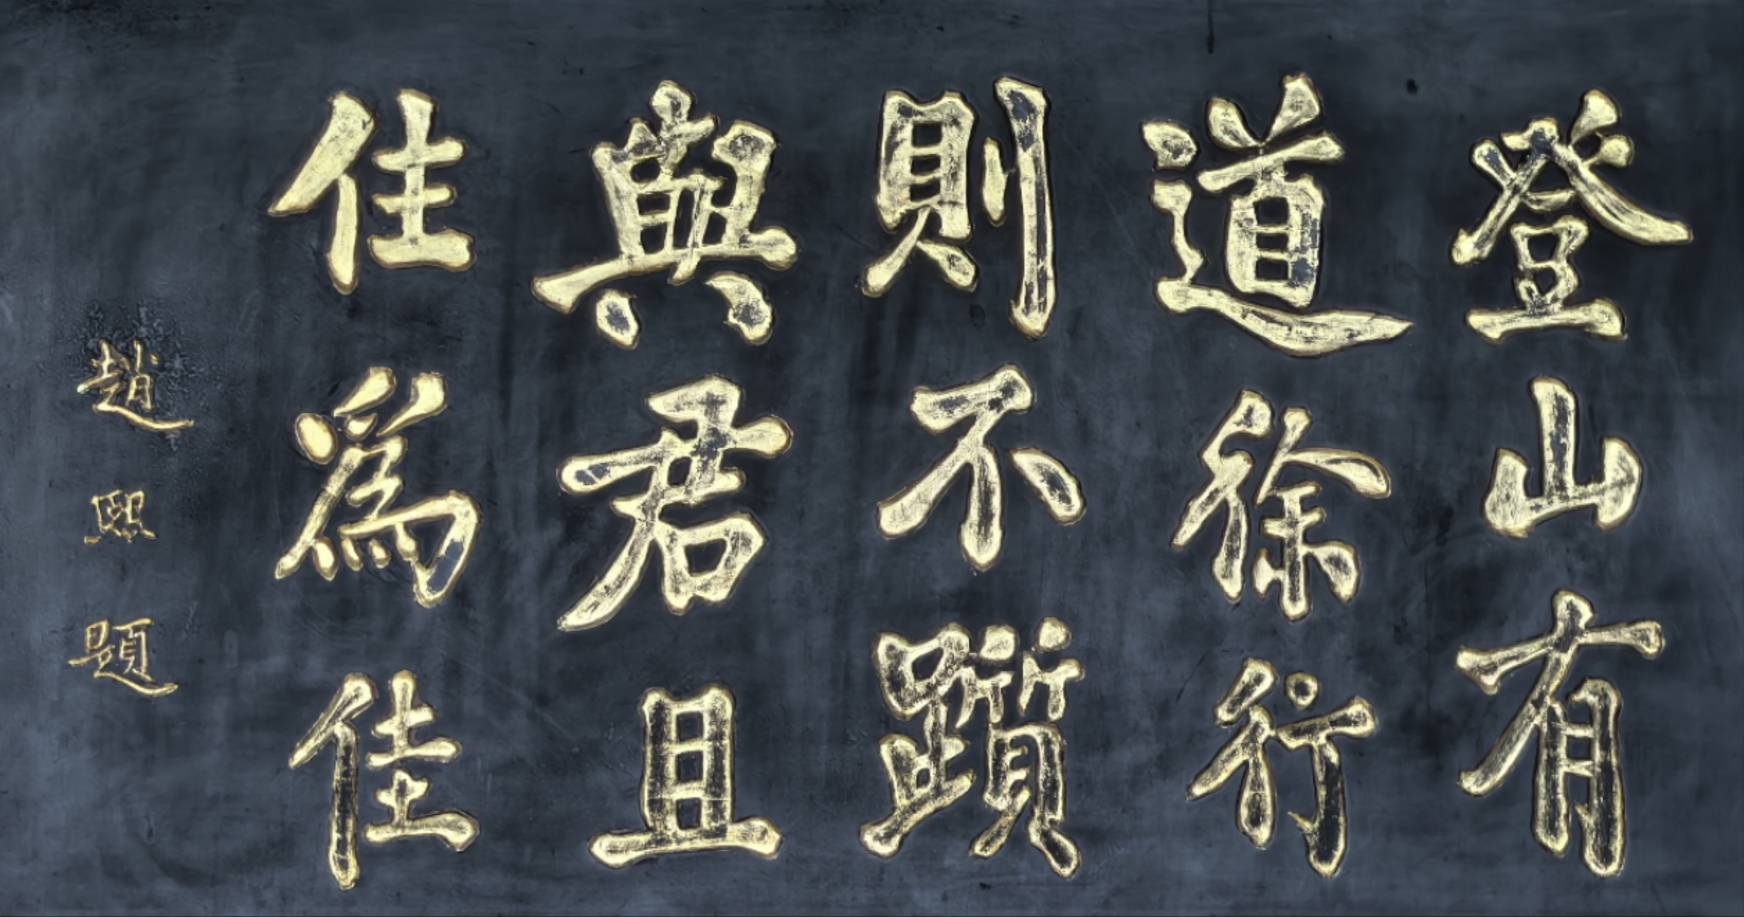 登山有
道徐行
則不躓
與君且
住爲佳
趙熙題